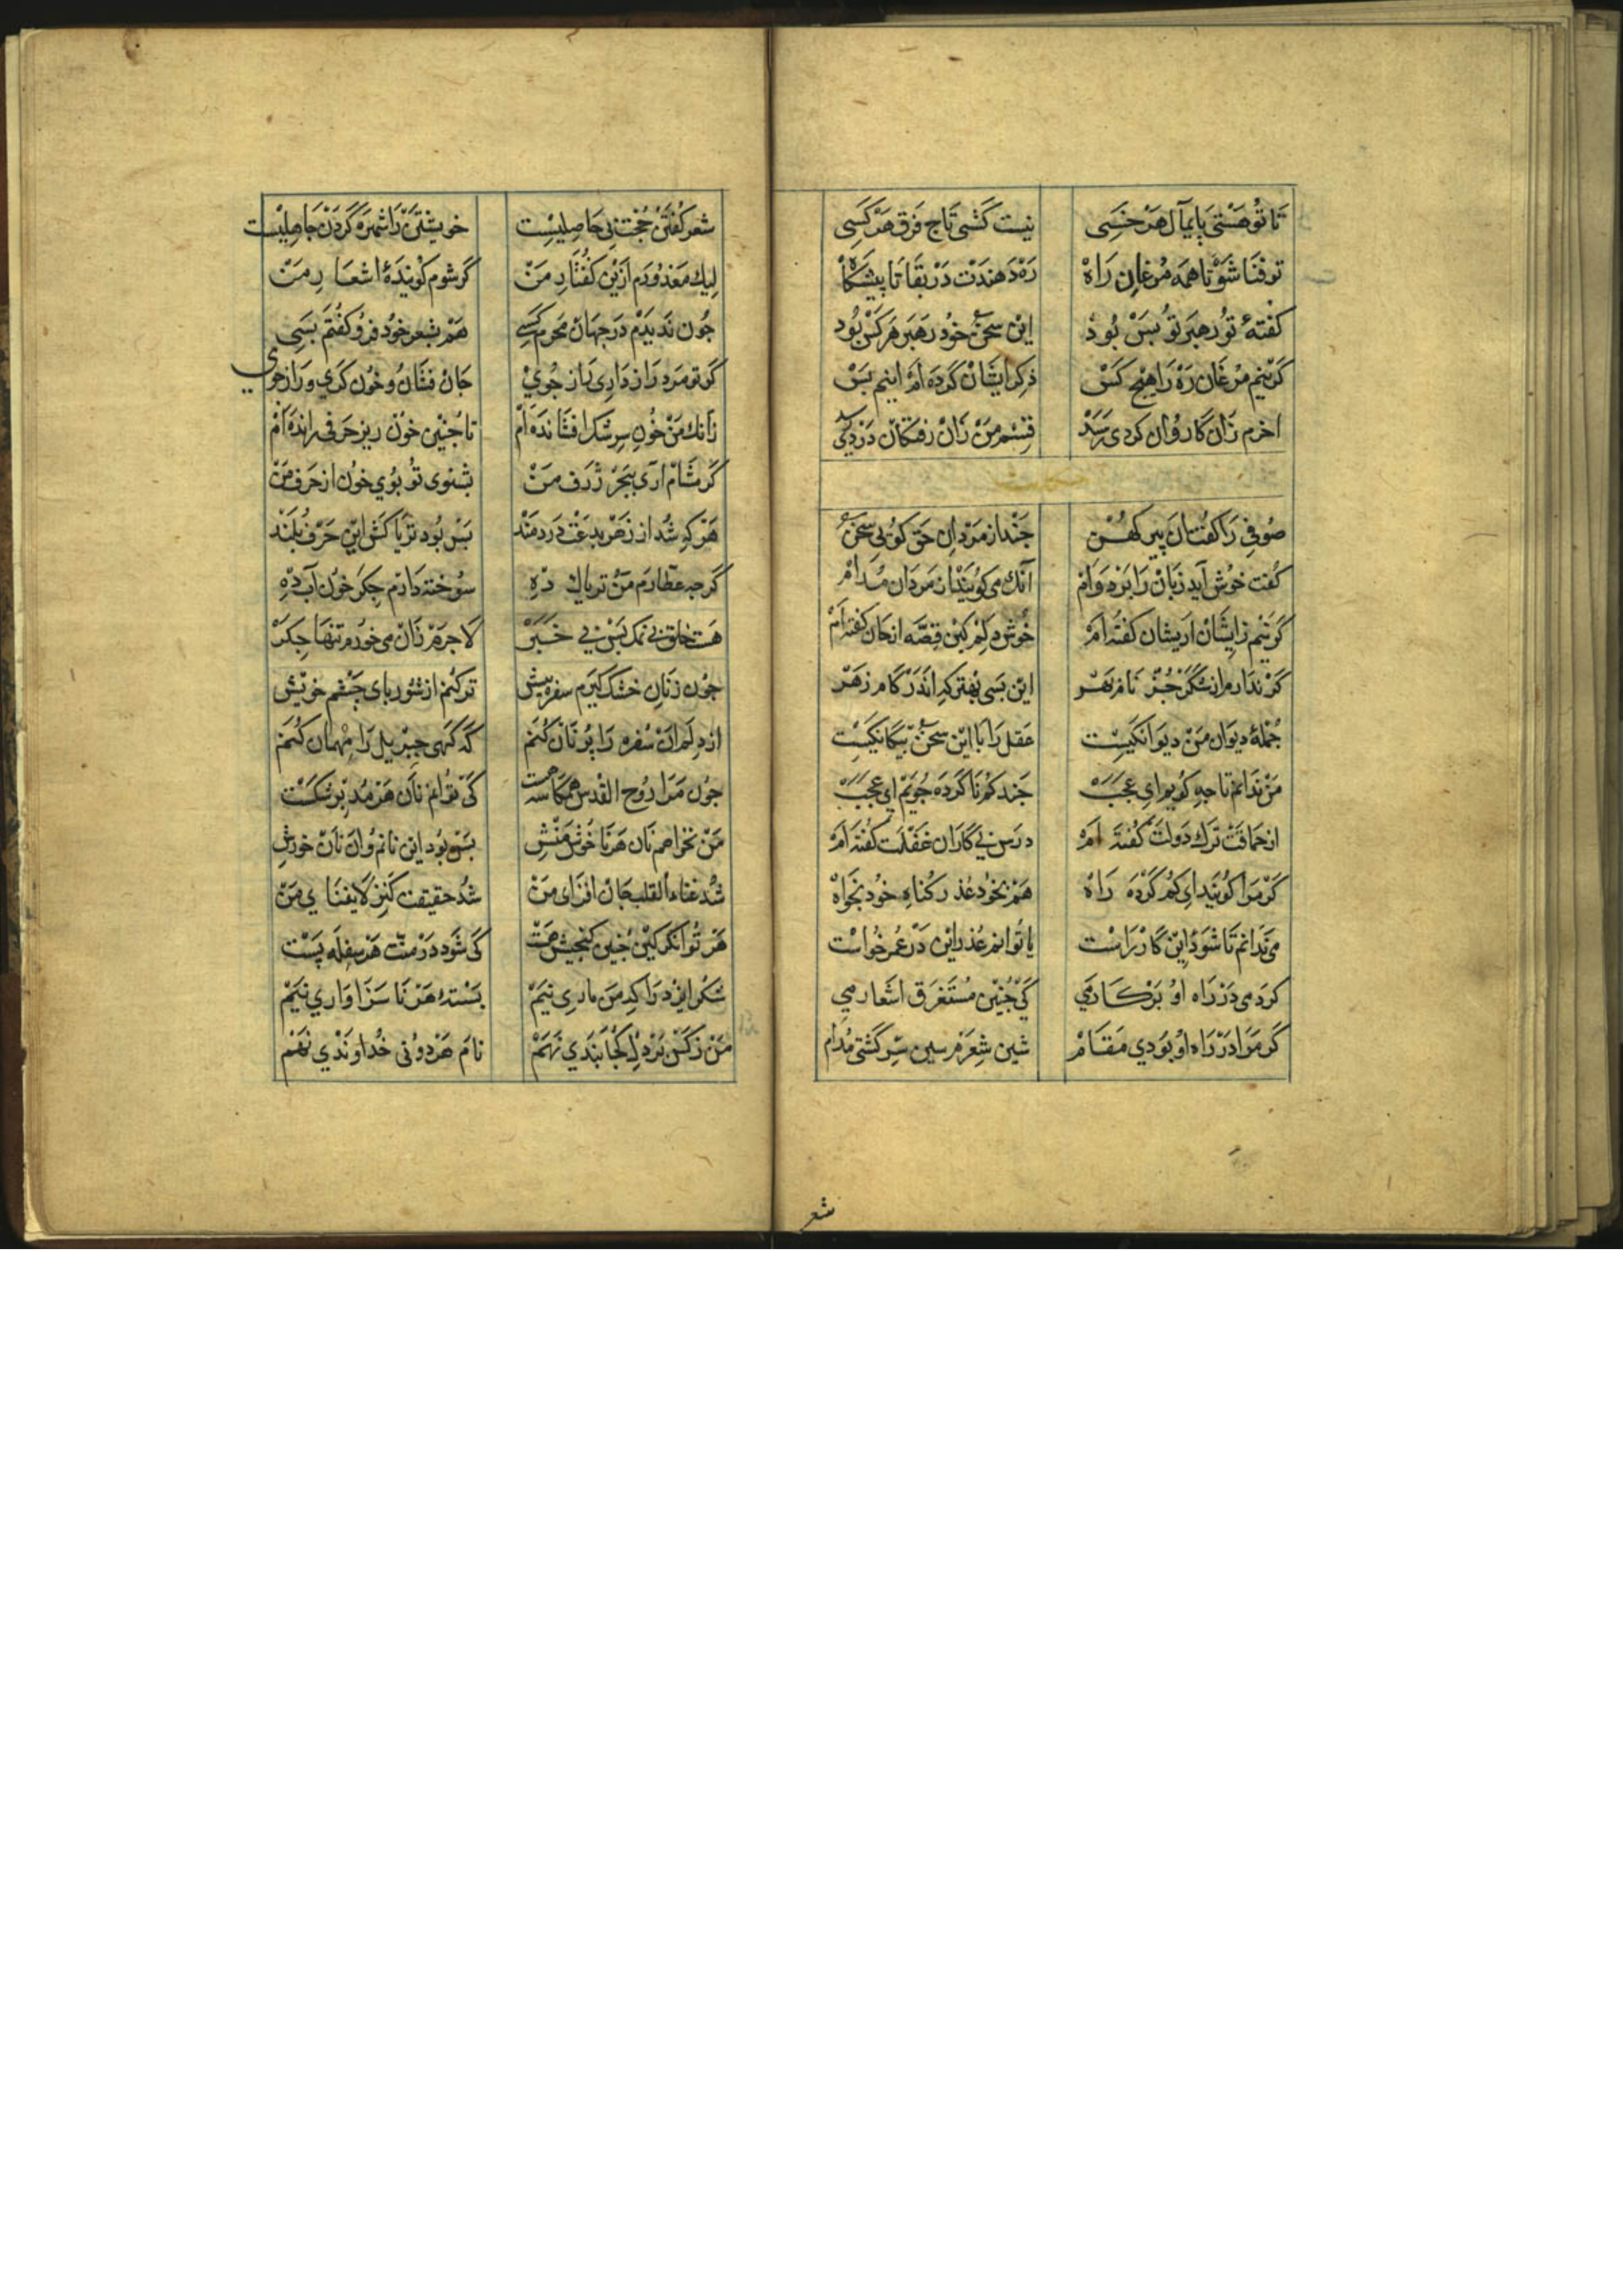 تا تو هستی پایمال هر خسی نیست گشتی تاج فرق هر کسی
تو فنا شو تا همه مرغان راه ره دهندت در بقا تا پیشگاه
کفتهٔ تو رهبر تو بس بود این سخن خود رهبر هر کس بود
کر نیم مرغان ره را هیچ کس ذکر ایشان کرده‌ام اینم بس
اخرم زان کاروان کردی رسد قسم من زان رفتکان دردی رسد
حکایت
صوفی را کفت آن پیر کهن چند از مردان حق کوئی سخن
کفت خوش آید زبان را بر دوام آنک می‌کویند از مردان مدام
کر نیم زایشان ازیشان کفته‌ام خوش دلم کین قصه از جان کفته‌ام
کر ندارم از شکر جز نام بهر این بسی بهتر که اندر کام زهر
جملهٔ دیوان من دیوانکیست عقل را با این سخن بیکانکیست
من ندانم تا چه کویم ای عجب چند کم ناکرده جویم ای عجب
از حماقت ترک دولت کفته‌ام درس بی‌کاران غفلت کفته‌ام
کر مرا کویند ای کم کرده راه هم بخود عذر کناه خود بخواه
می ندانم تا شود این کار راست یا توانم عذر این در عمر خواست
کردمی در راه او بر کارمی کی چنین مستغرق اشعارمی
کر مرا در راه او بودی مقام شین شعرم سین سر کشتی مدام
شعر
شعر کفتن حجت بی حاصلیست خویشتن را شمره کردن جاهلیست
لیک معذورم ازین کفتار من کر شوم کویندهٔ اشعار من
چون ندیدم در جهان محرم کسی هم بشعر خود فرو کفتم بسی
کر تو مرد رازداری راز جوی جان فشان و خون کری و راز جوی
زانک من خون سرشک افشانده‌ام تا چنین خون ریز حرفی رانده‌ام
کر مشام آری ببحر ژرف من بشنوی تو بوی خون از حرف من
هر که شد از زهر بدعت دردمند بس بود تریاکش این حرف بلند
کرچه عطارم من تریاک ده سوخته دارم جکر خون آب ده
هست خلقی بی نمک بس بی خبر لاجرم زان می خورم تنها جکر
چون زنان خشک کیرم سفره پیش تر کنم از شوربای چشم خویش
از دلم آن سفره را بریان کنم که کهی جبریل را مهمان کنم
چون مرا روح القدس همکاسه است کی توانم نان هر مدبر شکست
من نخواهم نان هر ناخوش منش بس بود این نانم و آن نان خورش
شد غناء القلب جان افزای من شد حقیقت کنز لایفنای من
هر توانکر کین چنین کنجیش هست کی شود در منت هر سفله پست
شکر ایزد را که من باری نیم بستهٔ هر ناسزاواری نیم
من زکس بر دل کجا بندی نهم نام هر دونی خداوندی نهم